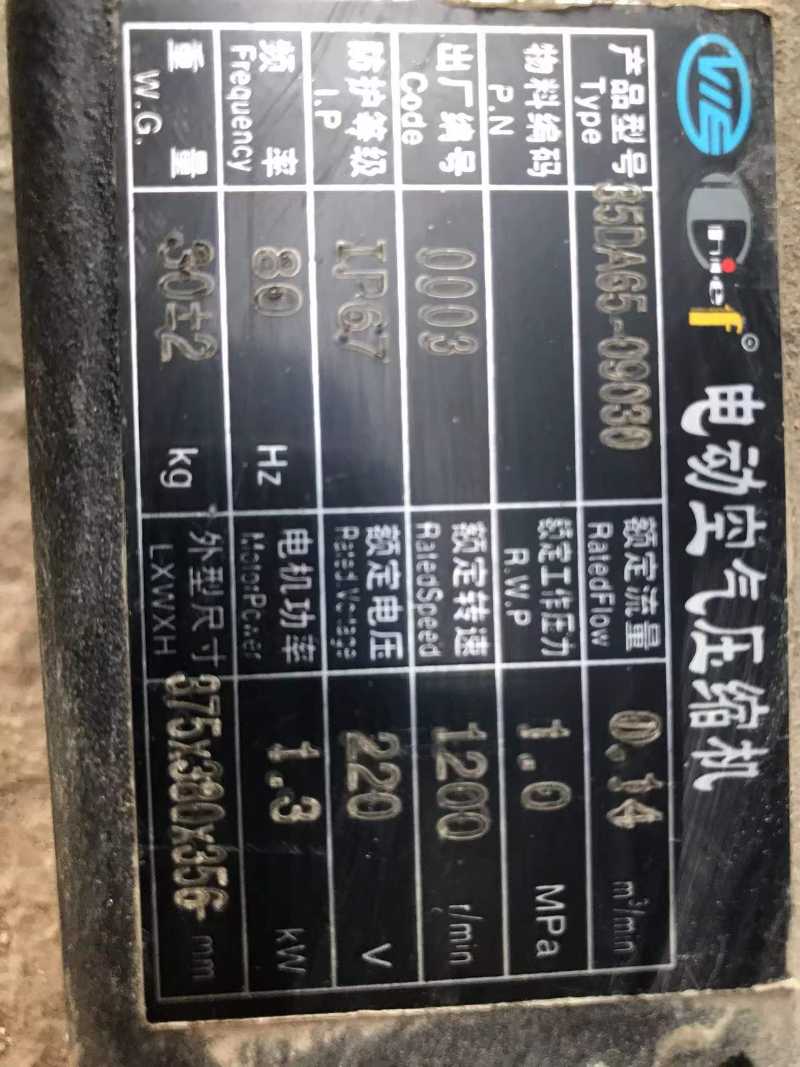 VIE Chief® 电动空气压缩机
产品型号 Type 35DAG5-09030 额定流量 RatedFlow 0.14 m³/min
物料编码 P.N 额定工作压力 R.W.P 1.0 MPa
出厂编号 Code 0003 额定转速 RatedSpeed 1200 r/min
防护等级 I.P IP67 额定电压 Rated Voltage 220 V
频率 Frequency 80 Hz 电机功率 MotorPower 1.3 kW
重量 W.G. 30±2 kg 外型尺寸 LXWXH 375x380x356 mm